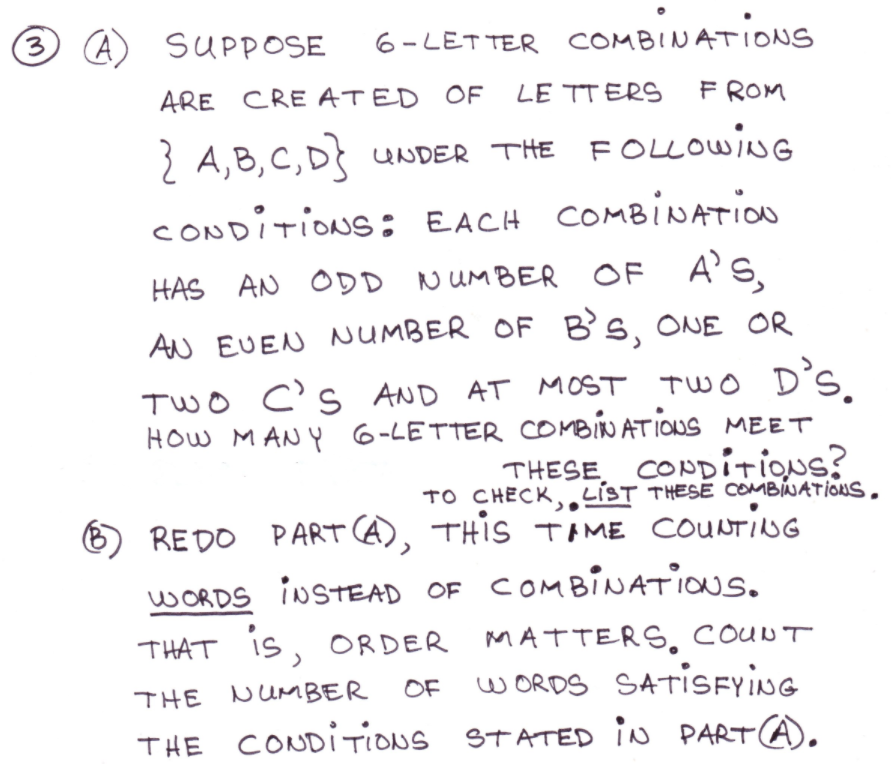 ③ Ⓐ SUPPOSE 6-LETTER COMBINATIONS
ARE CREATED OF LETTERS FROM
{A,B,C,D} UNDER THE FOLLOWING
CONDITIONS: EACH COMBINATION
HAS AN ODD NUMBER OF A'S,
AN EVEN NUMBER OF B'S, ONE OR
TWO C'S AND AT MOST TWO D'S.
HOW MANY 6-LETTER COMBINATIONS MEET
THESE CONDITIONS?
TO CHECK, LIST THESE COMBINATIONS.
Ⓑ REDO PART Ⓐ, THIS TIME COUNTING
WORDS INSTEAD OF COMBINATIONS.
THAT IS, ORDER MATTERS. COUNT
THE NUMBER OF WORDS SATISFYING
THE CONDITIONS STATED IN PART Ⓐ.